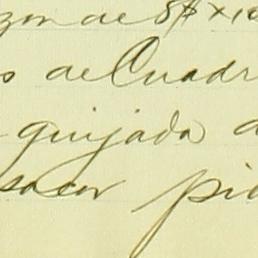 zon de 8$ x 10
s de Cuadr
quijada d
sacar pie